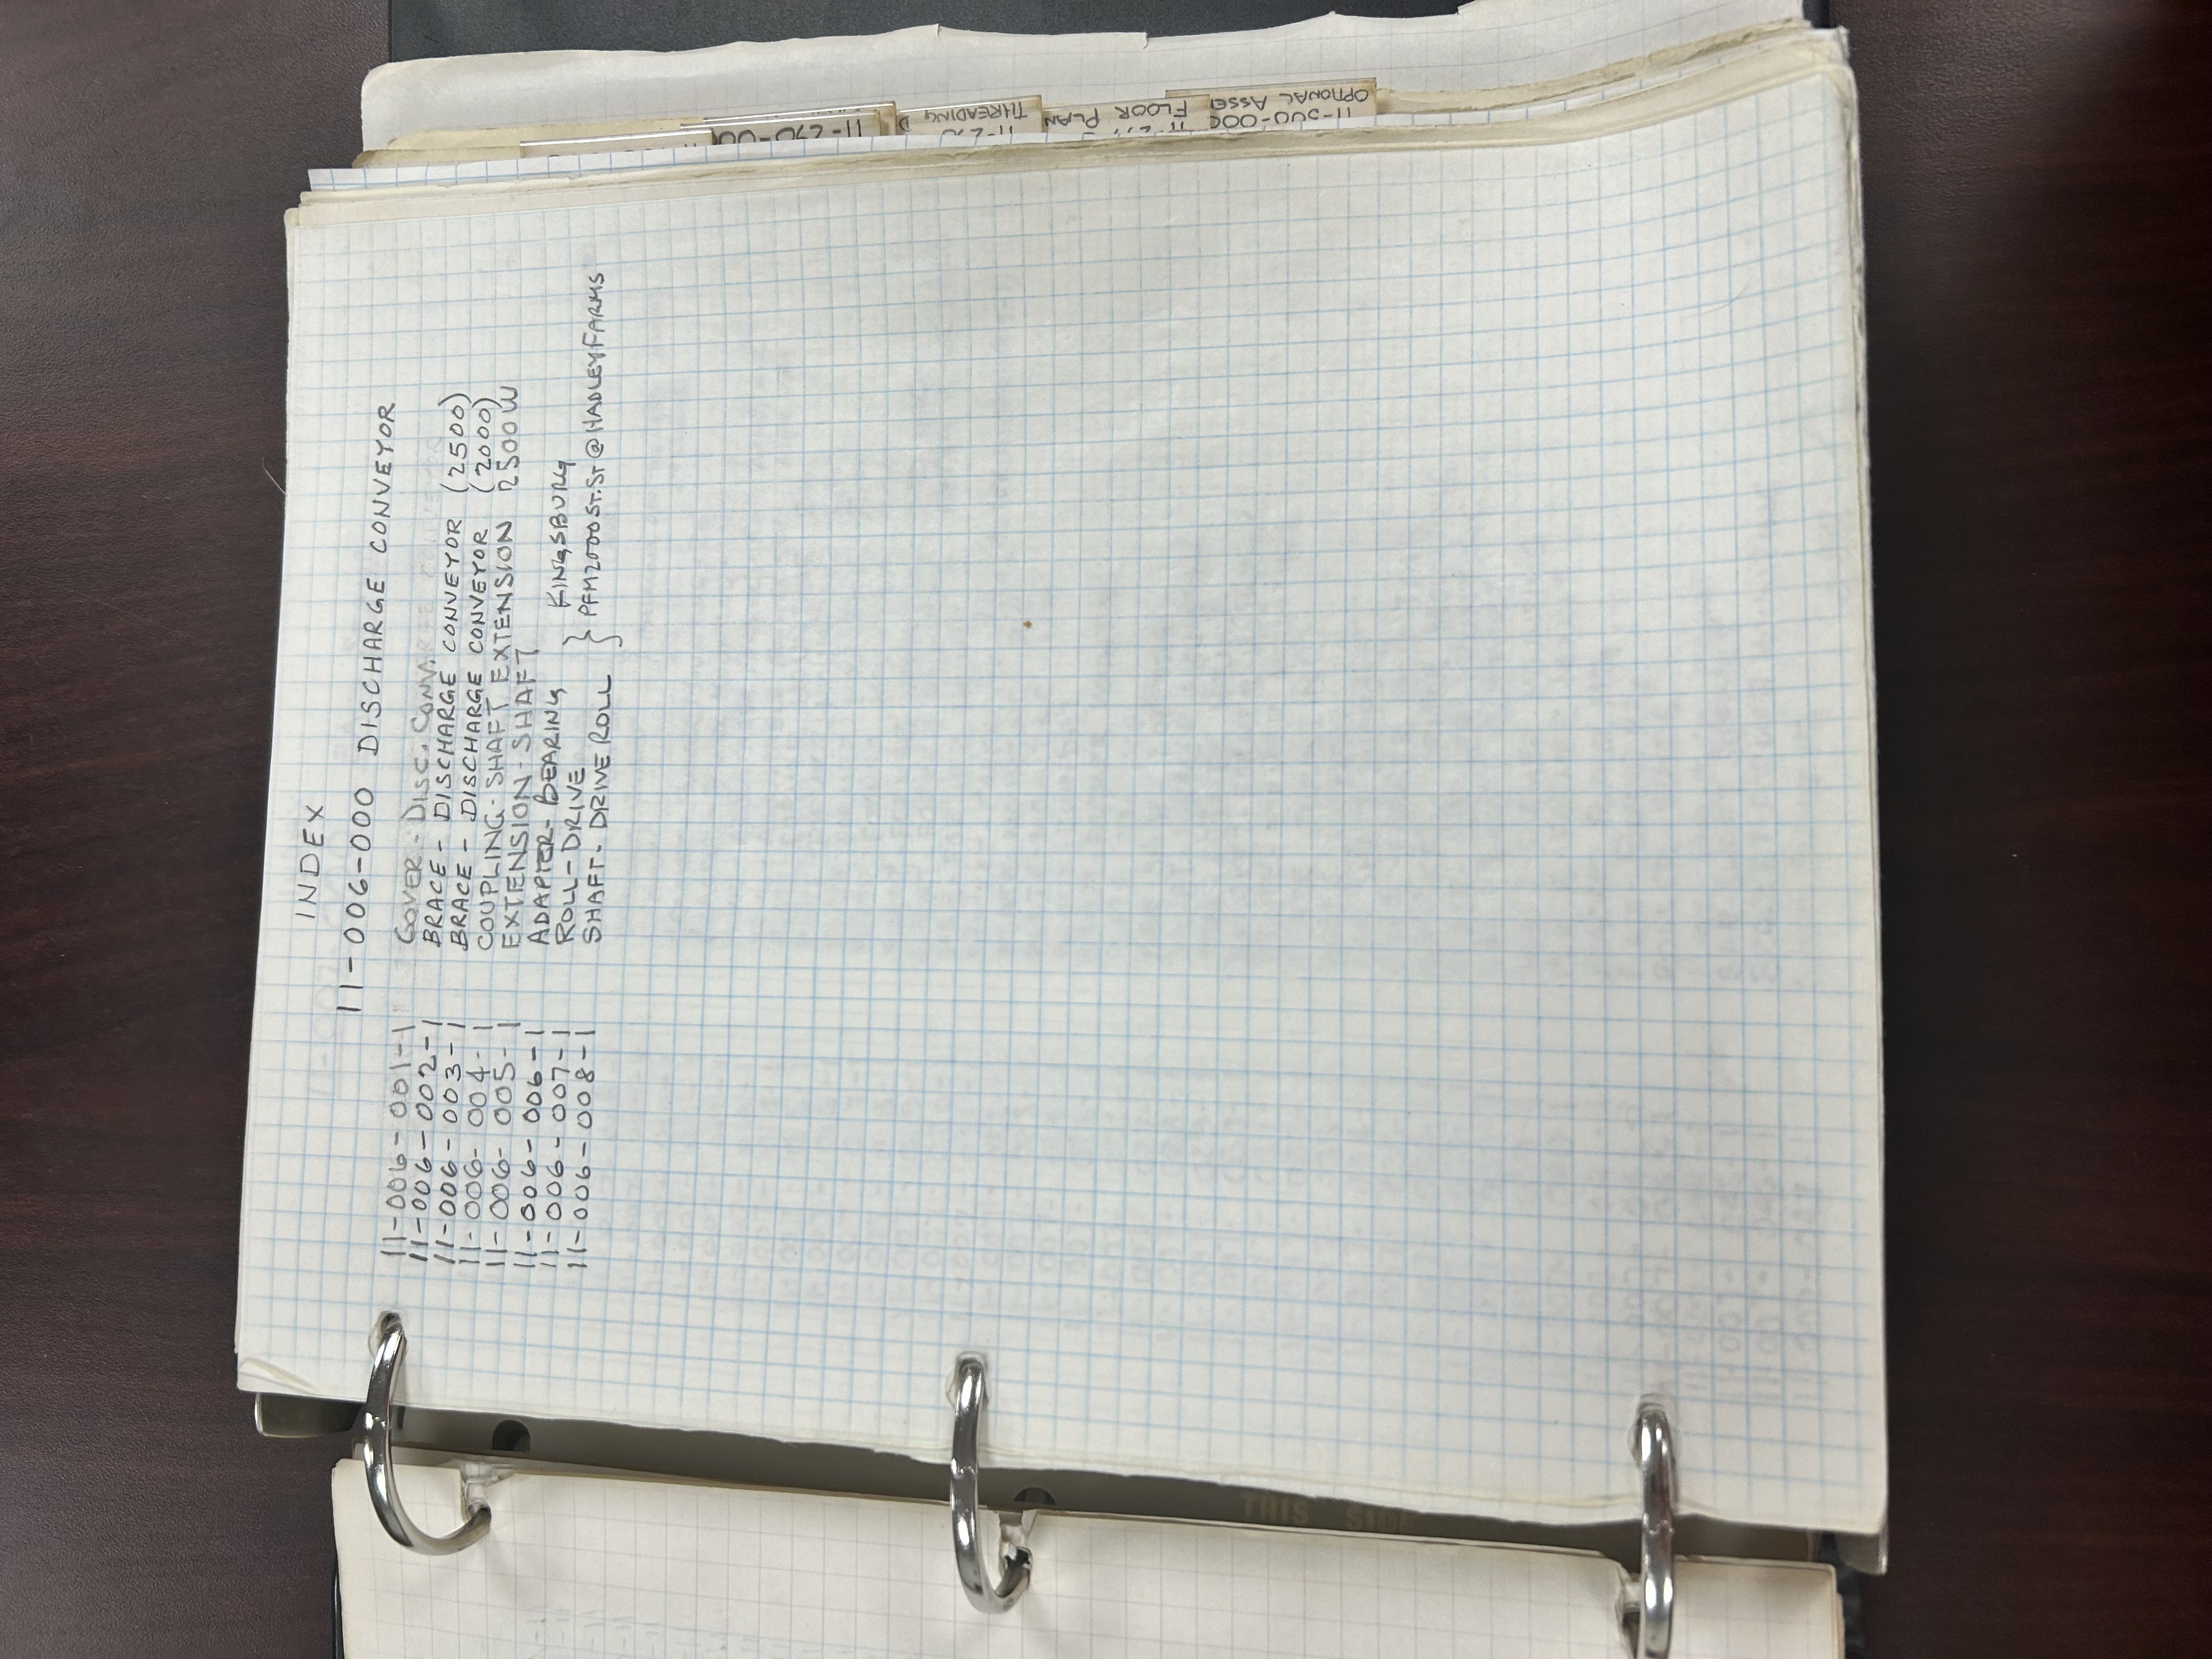 INDEX
11-006-000 DISCHARGE CONVEYOR
11-006-001-1 COVER - DISC. CONV.
11-006-002-1 BRACE - DISCHARGE CONVEYOR (2500)
11-006-003-1 BRACE - DISCHARGE CONVEYOR (2000)
11-006-004-1 COUPLING-SHAFT EXTENSION 2500W
11-006-005-1 EXTENSION-SHAFT
11-006-006-1 ADAPTER-BEARING } KINGSBURG
11-006-007-1 ROLL-DRIVE } PFM2000ST.ST@HADLEYFARMS
11-006-008-1 SHAFT-DRIVE ROLL
THREADING D
FLOOR PLAN
OPTIONAL ASSE